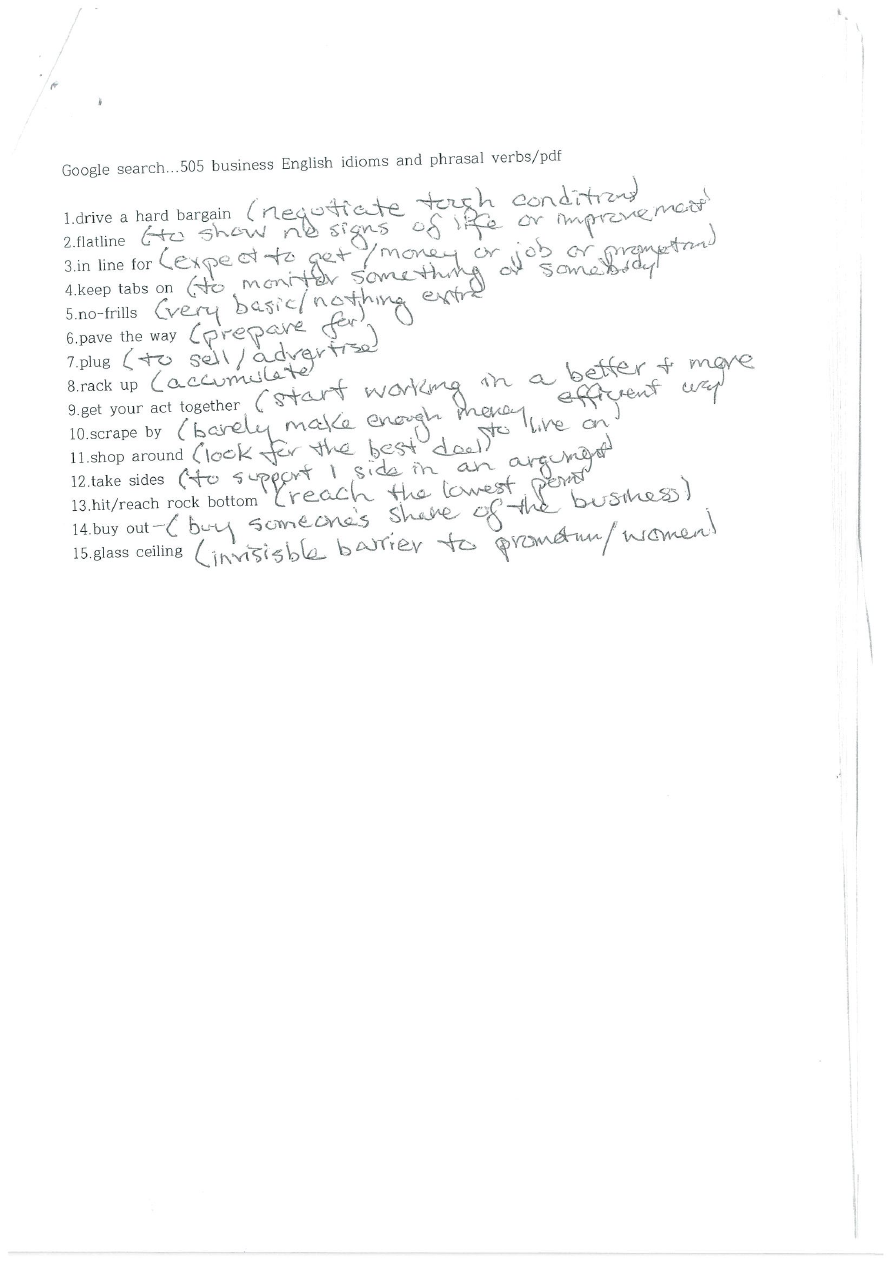 Google search...505 business English idioms and phrasal verbs/pdf
1.drive a hard bargain (negotiate tough conditions)
2.flatline (to show no signs of life or improvement)
3.in line for (expect to get /money or job or promotion)
4.keep tabs on (to monitor something or somebody)
5.no-frills (very basic/nothing extra
6.pave the way (prepare for)
7.plug (to sell/advertise)
8.rack up (accumulate)
9.get your act together (start working in a better + more
efficient way
10.scrape by (barely make enough money to live on)
11.shop around (look for the best deal)
12.take sides (to support 1 side in an argument)
13.hit/reach rock bottom (reach the lowest point
14.buy out - (buy someone's share of the business)
15.glass ceiling (invisible barrier to promotion/women)